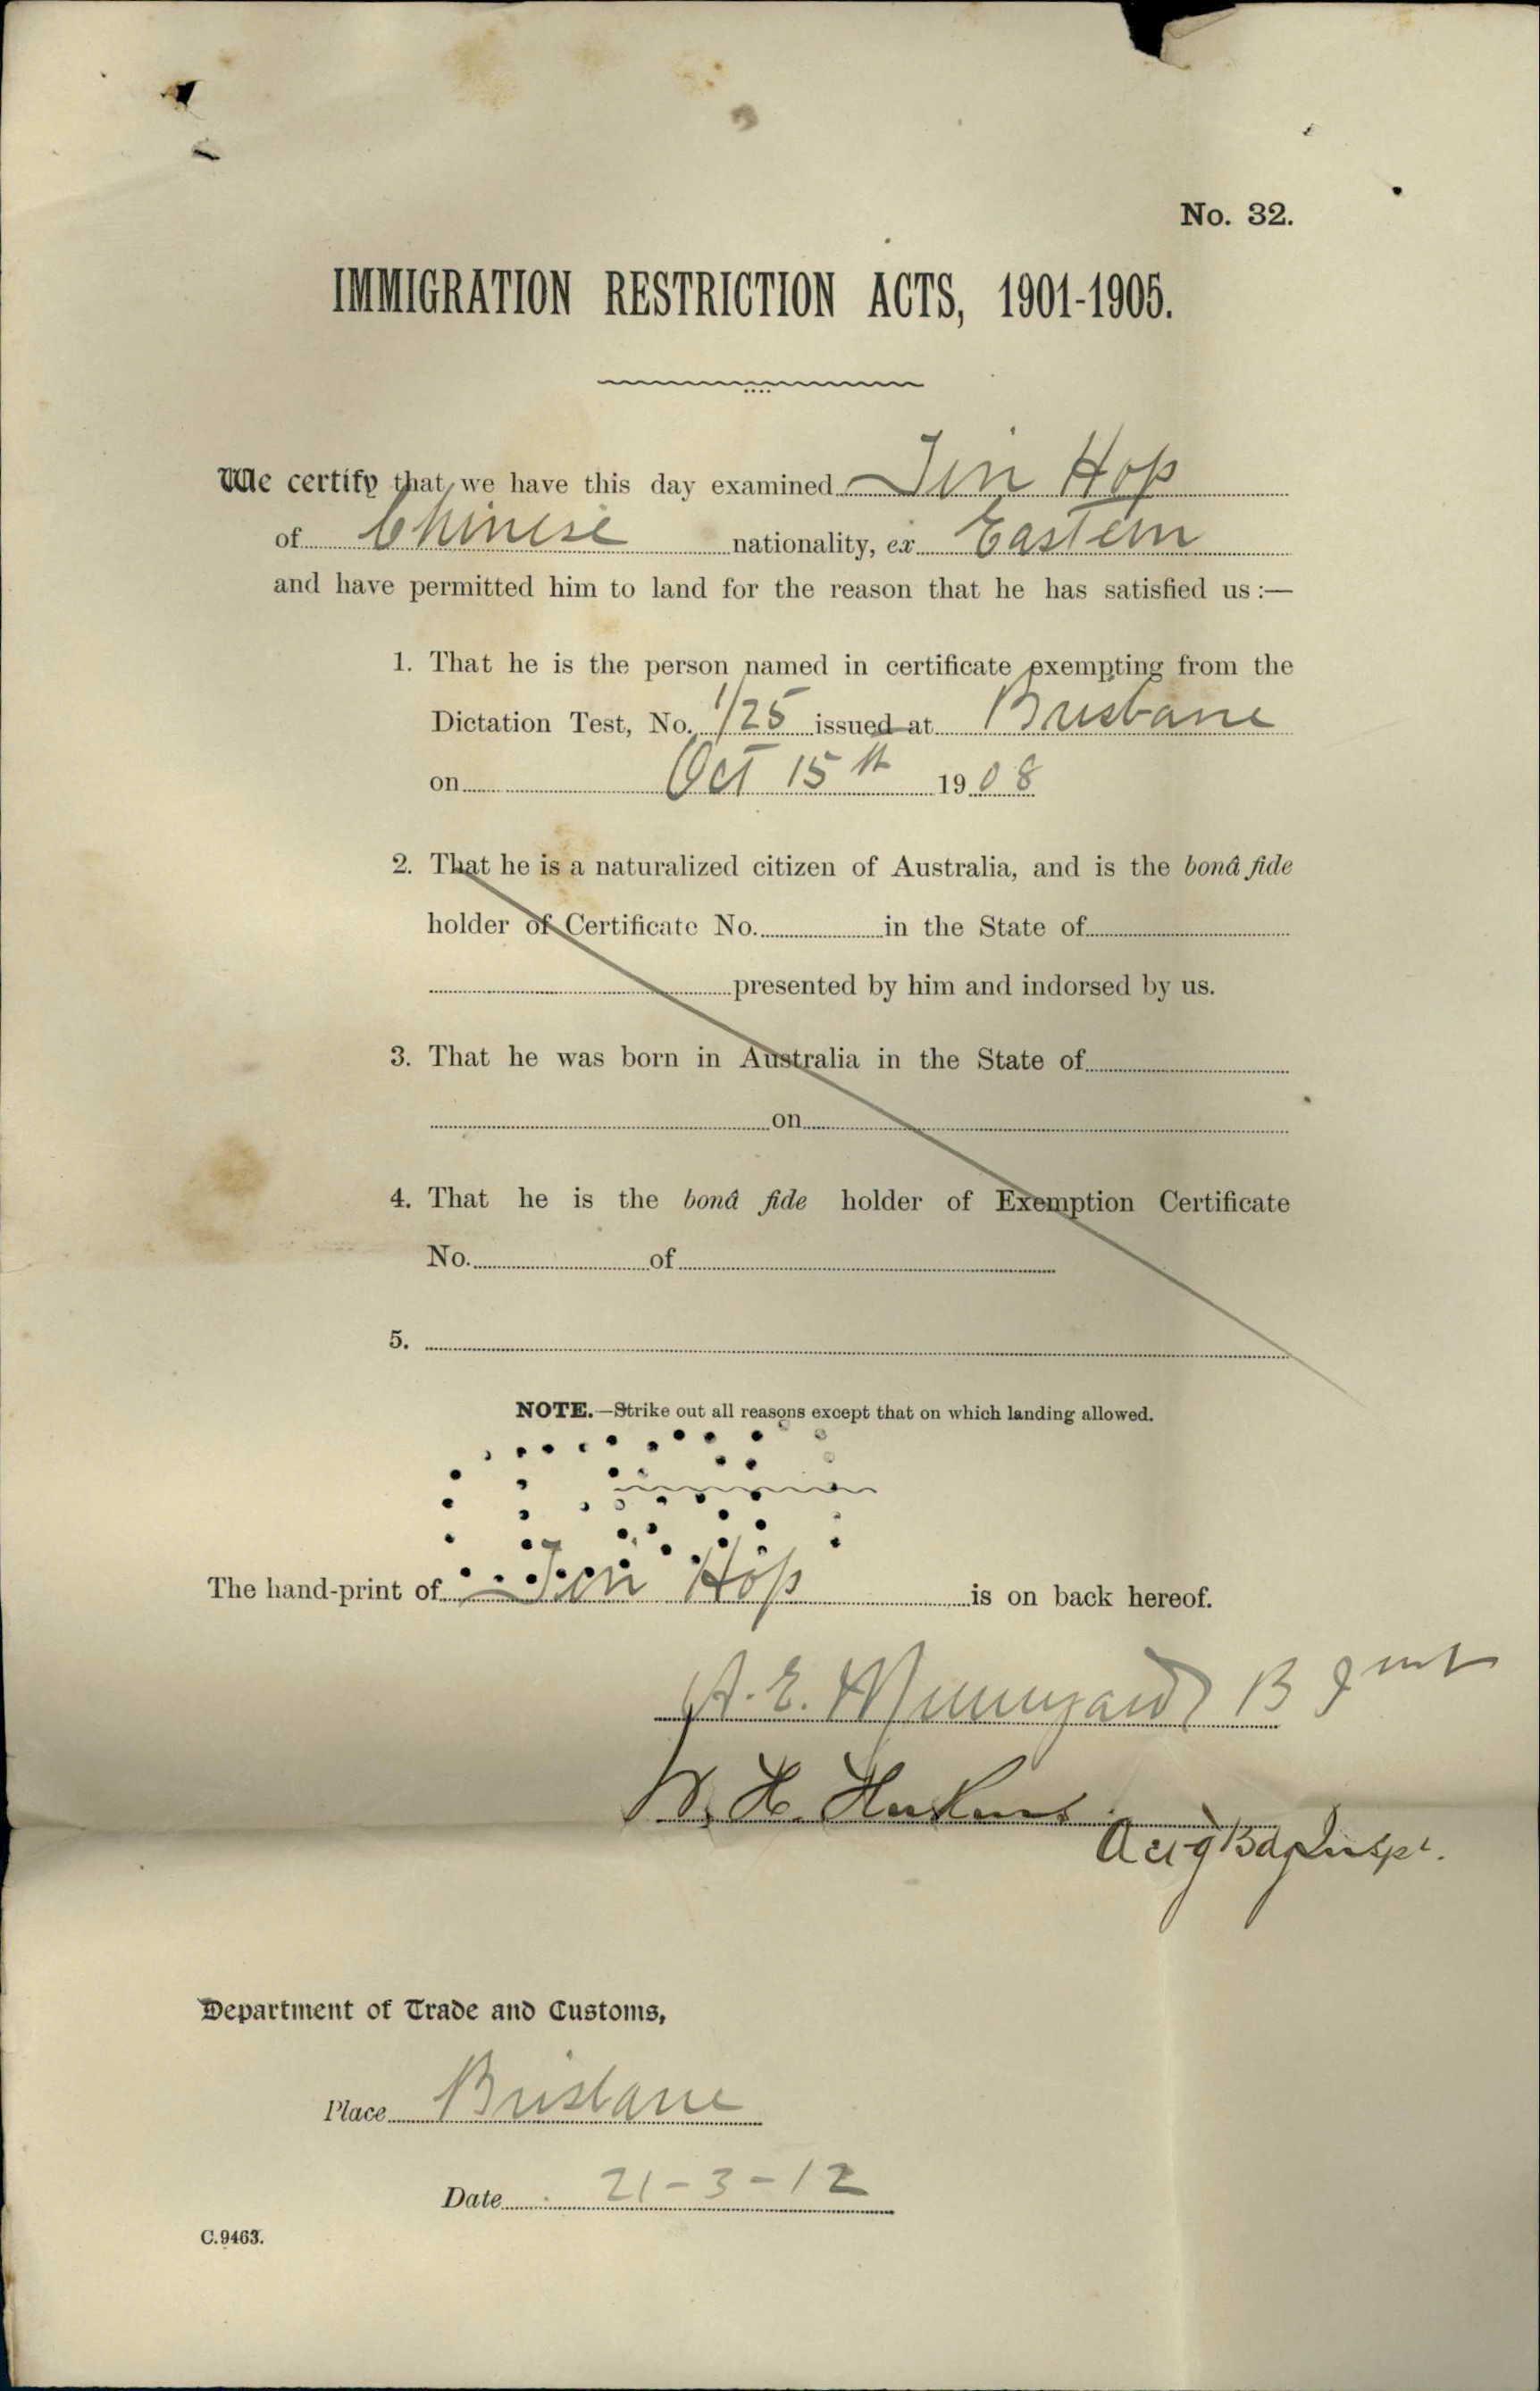 No. 32.
IMMIGRATION RESTRICTION ACTS, 1901-1905.
We certify that we have this day examined Jin Hop
of Chinese nationality, ex Eastern
and have permitted him to land for the reason that he has satisfied us :—
1. That he is the person named in certificate exempting from the
Dictation Test, No. 1/25 issued at Brisbane
on Oct 15th 1908
2. That he is a naturalized citizen of Australia, and is the bonâ fide
holder of Certificate No. in the State of
presented by him and indorsed by us.
3. That he was born in Australia in the State of
on
4. That he is the bonâ fide holder of Exemption Certificate
No. of
5.
NOTE.—Strike out all reasons except that on which landing allowed.
The hand-print of Jin Hop is on back hereof.
A. E.
W. H.
Actg Bdg Inspr.
Department of Trade and Customs,
Place Brisbane
Date 21-3-12
C.9463.